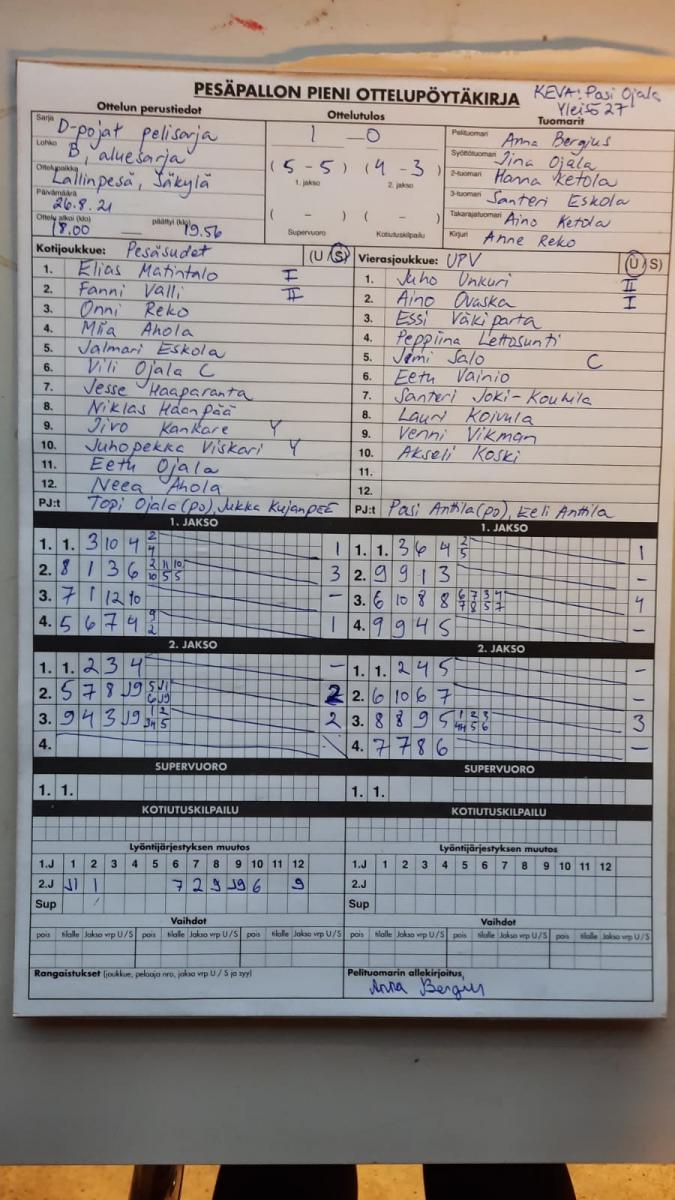 PESÄPALLON PIENI OTTELUPÖYTÄKIRJA
KEVA: Pasi Ojala
Yleisö 27
Ottelun perustiedot
Ottelutulos
Tuomarit
Sarja D-pojat pelisarja
Lohko B, aluesarja
Ottelupaikka Lallinpesä, Säkylä
Päivämäärä 26.8.21
Ottelu alkoi (klo) 18.00 päättyi (klo) 19.56
1 – 0
( 5 – 5 ) ( 4 – 3 )
1. jakso 2. jakso
( – ) ( – )
Supervuoro Kotiutuskilpailu
Pelituomari Anna Bergius
Syöttötuomari Jina Ojala
2-tuomari Hanna Ketola
3-tuomari Santeri Eskola
Takarajatuomari Aino Ketola
Kirjuri Anne Reko
Kotijoukkue: Pesäsudet (U / S)
1. Elias Matintalo I
2. Fanni Valli II
3. Onni Reko
4. Miia Ahola
5. Jalmari Eskola
6. Vili Ojala C
7. Jesse Haaparanta
8. Niklas Haanpää
9. Jivo Kankare Y
10. Juhopekka Viskari Y
11. Eetu Ojala
12. Neea Ahola
PJ:t Topi Ojala (po), Jukka Kujanpää
Vierasjoukkue: UPV (U / S)
1. Juho Unkuri II
2. Aino Ovaska I
3. Essi Väkiparta
4. Peppiina Lettosunti
5. Jimi Salo C
6. Eetu Vainio
7. Santeri Joki-Kouhila
8. Lauri Koivula
9. Venni Vikman
10. Akseli Koski
11.
12.
PJ:t Pasi Anttila (po), Eeli Anttila
1. JAKSO
1. 1. 3 10 4 2 4 1
2. 8 1 3 6 2 11 10 10 5 5 3
3. 7 1 12 10 –
4. 5 6 7 4 9 2 1
1. JAKSO
1. 1. 3 6 4 2 5 1
2. 9 9 1 3 –
3. 6 10 8 8 6 7 3 4 7 8 5 7 4
4. 9 9 4 5 –
2. JAKSO
1. 1. 2 3 4 –
2. 5 7 8 J9 5 J1 6 J9 2
3. 9 4 3 J9 1 2 5 2
4.
2. JAKSO
1. 1. 2 4 5 –
2. 6 10 6 7 –
3. 8 8 9 5 1 2 3 5 6 3
4. 7 7 8 6 –
SUPERVUORO
1. 1.
SUPERVUORO
1. 1.
KOTIUTUSKILPAILU
KOTIUTUSKILPAILU
Lyöntijärjestyksen muutos
1.J 1 2 3 4 5 6 7 8 9 10 11 12
2.J J1 1 7 2 9 J9 6 9
Sup
Lyöntijärjestyksen muutos
1.J 1 2 3 4 5 6 7 8 9 10 11 12
2.J
Sup
Vaihdot
pois tilalle Jakso vrp U / S pois tilalle Jakso vrp U / S pois tilalle Jakso vrp U / S
Vaihdot
pois tilalle Jakso vrp U / S pois tilalle Jakso vrp U / S pois tilalle Jakso vrp U / S
Rangaistukset (joukkue, pelaaja nro, jakso vrp U / S ja syy)
Pelituomarin allekirjoitus
Anna Bergius